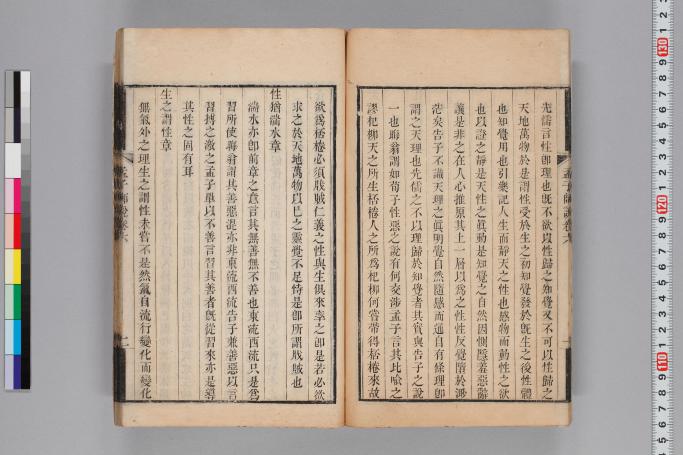 先儒言性即理也既不欲以性歸之知覺又不可以性歸之
天地萬物於是謂性受於生之初知覺發於既生之後性體
也知覺用也引樂記人生而靜天之性也感物而動性之欲
也以證之靜是天性之眞動是知覺之自然因惻隱羞惡辭
讓是非之在人心推原其上一層以爲之性性反覺墮於渺
茫矣告子不識天理之眞明覺自然隨感而通自有條理即
謂之天理也先儒之不以理歸於知覺者其實與告子之說
一也晦翁謂如荀子性惡之說有何交涉孟子言其比喻之
謬杞柳天之所生桮棬人之所爲杞柳何嘗帶得桮棬來故
孟子師說卷六
一
欲爲桮棬必須戕賊仁義之性與生俱來率之即是若必欲
求之於天地萬物以已之靈覺不足恃是即所謂戕賊也
性猶湍水章
湍水亦即前章之意言其無善無不善也東流西流只是爲
習所使晦翁謂其善惡混亦非東流西流告子兼善惡以言
習搏之激之孟子單以不善言習其善者既從習來亦是導
其性之固有耳
生之謂性章
無氣外之理生之謂性未嘗不是然氣自流行變化而變化
孟子師說卷六
二